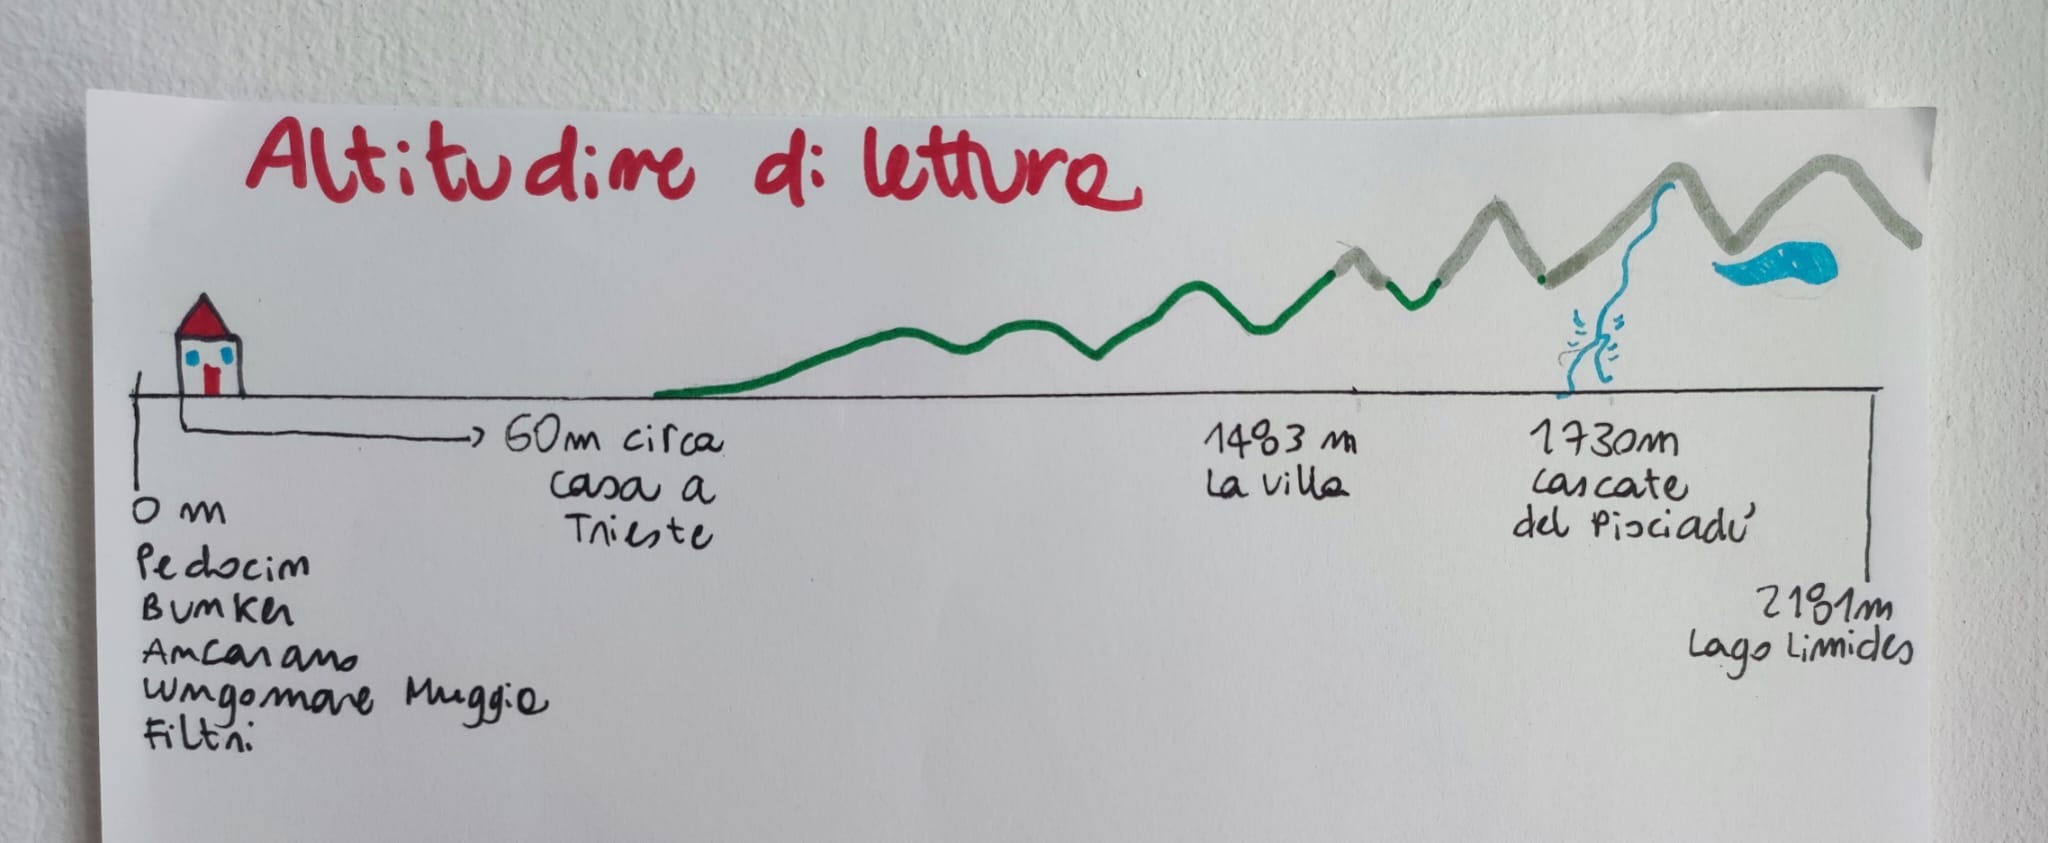 Altitudine di lettura
60m circa
casa a
Trieste
1483 m
La villa
1730m
cascate
del Pisciadù
0 m
Pedocin
Bunker
Ancarano
Lungomare Muggia
Filtri
2181m
Lago Limides